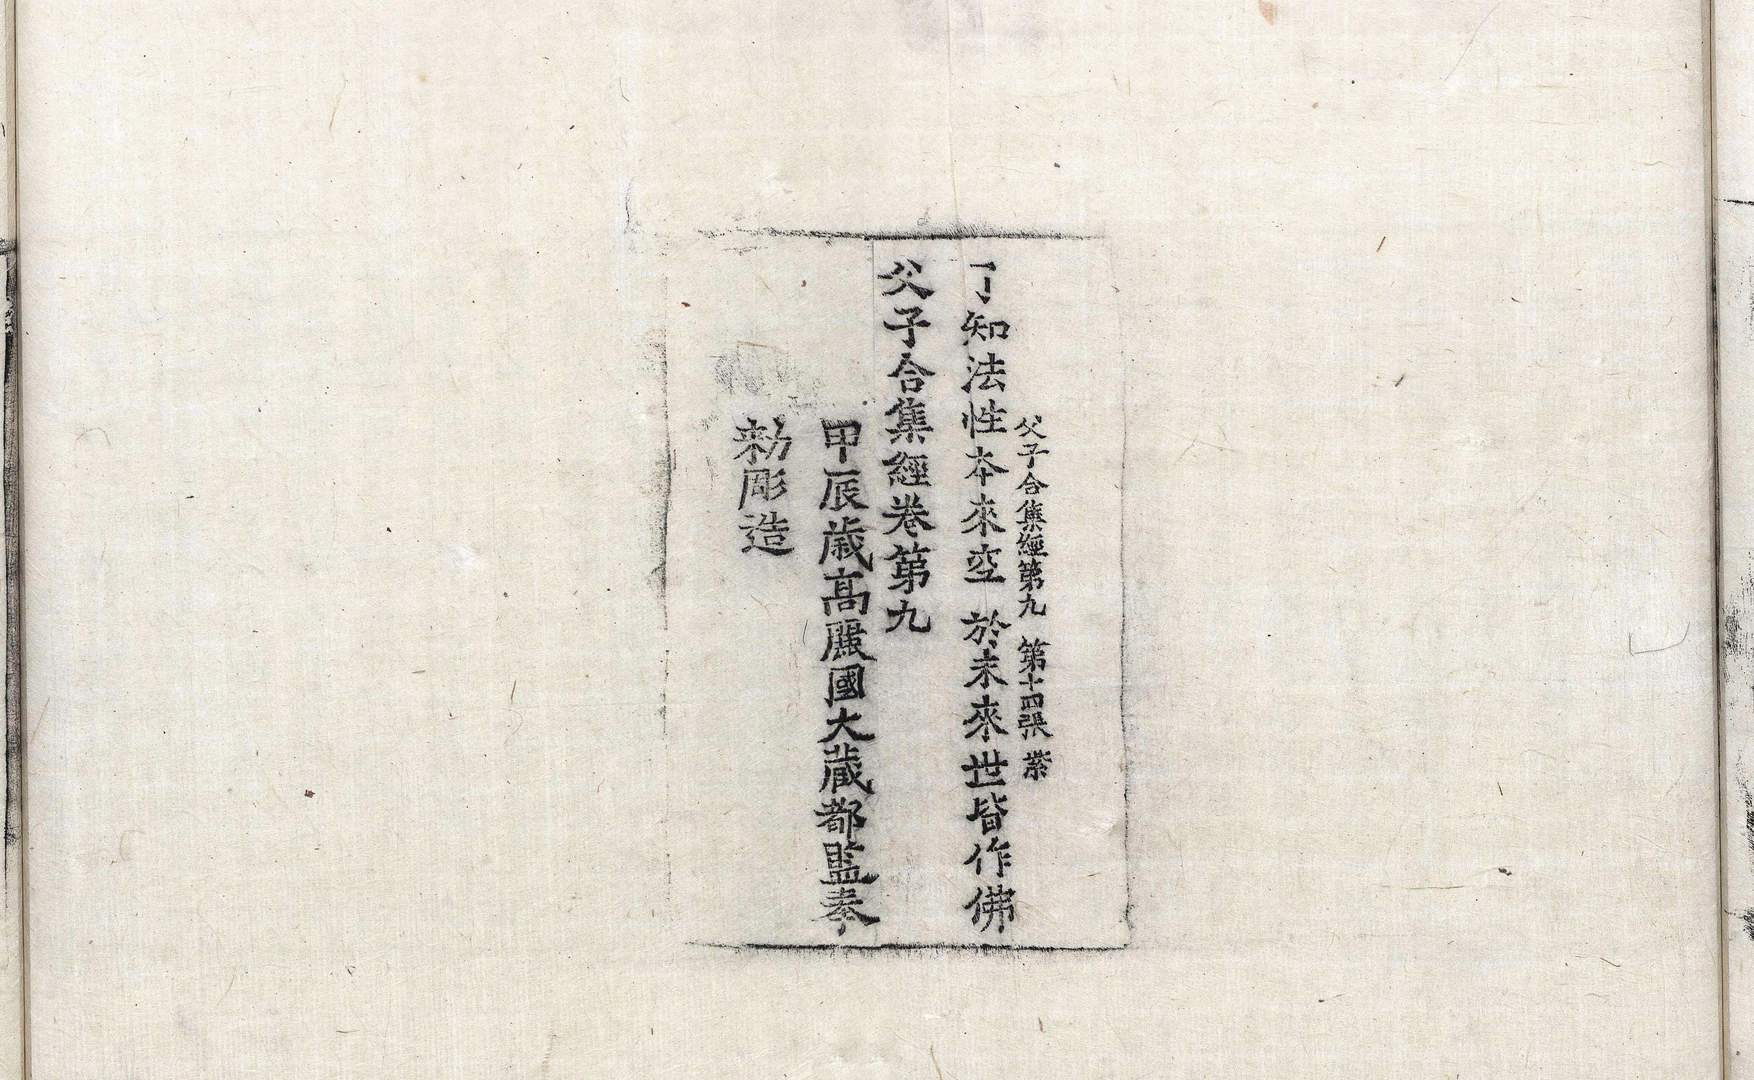 父子合集經第九 第十四張 業
了知法性本來空 於未來世皆作佛
父子合集經卷第九
甲辰歲高麗國大藏都監奉
勅彫造